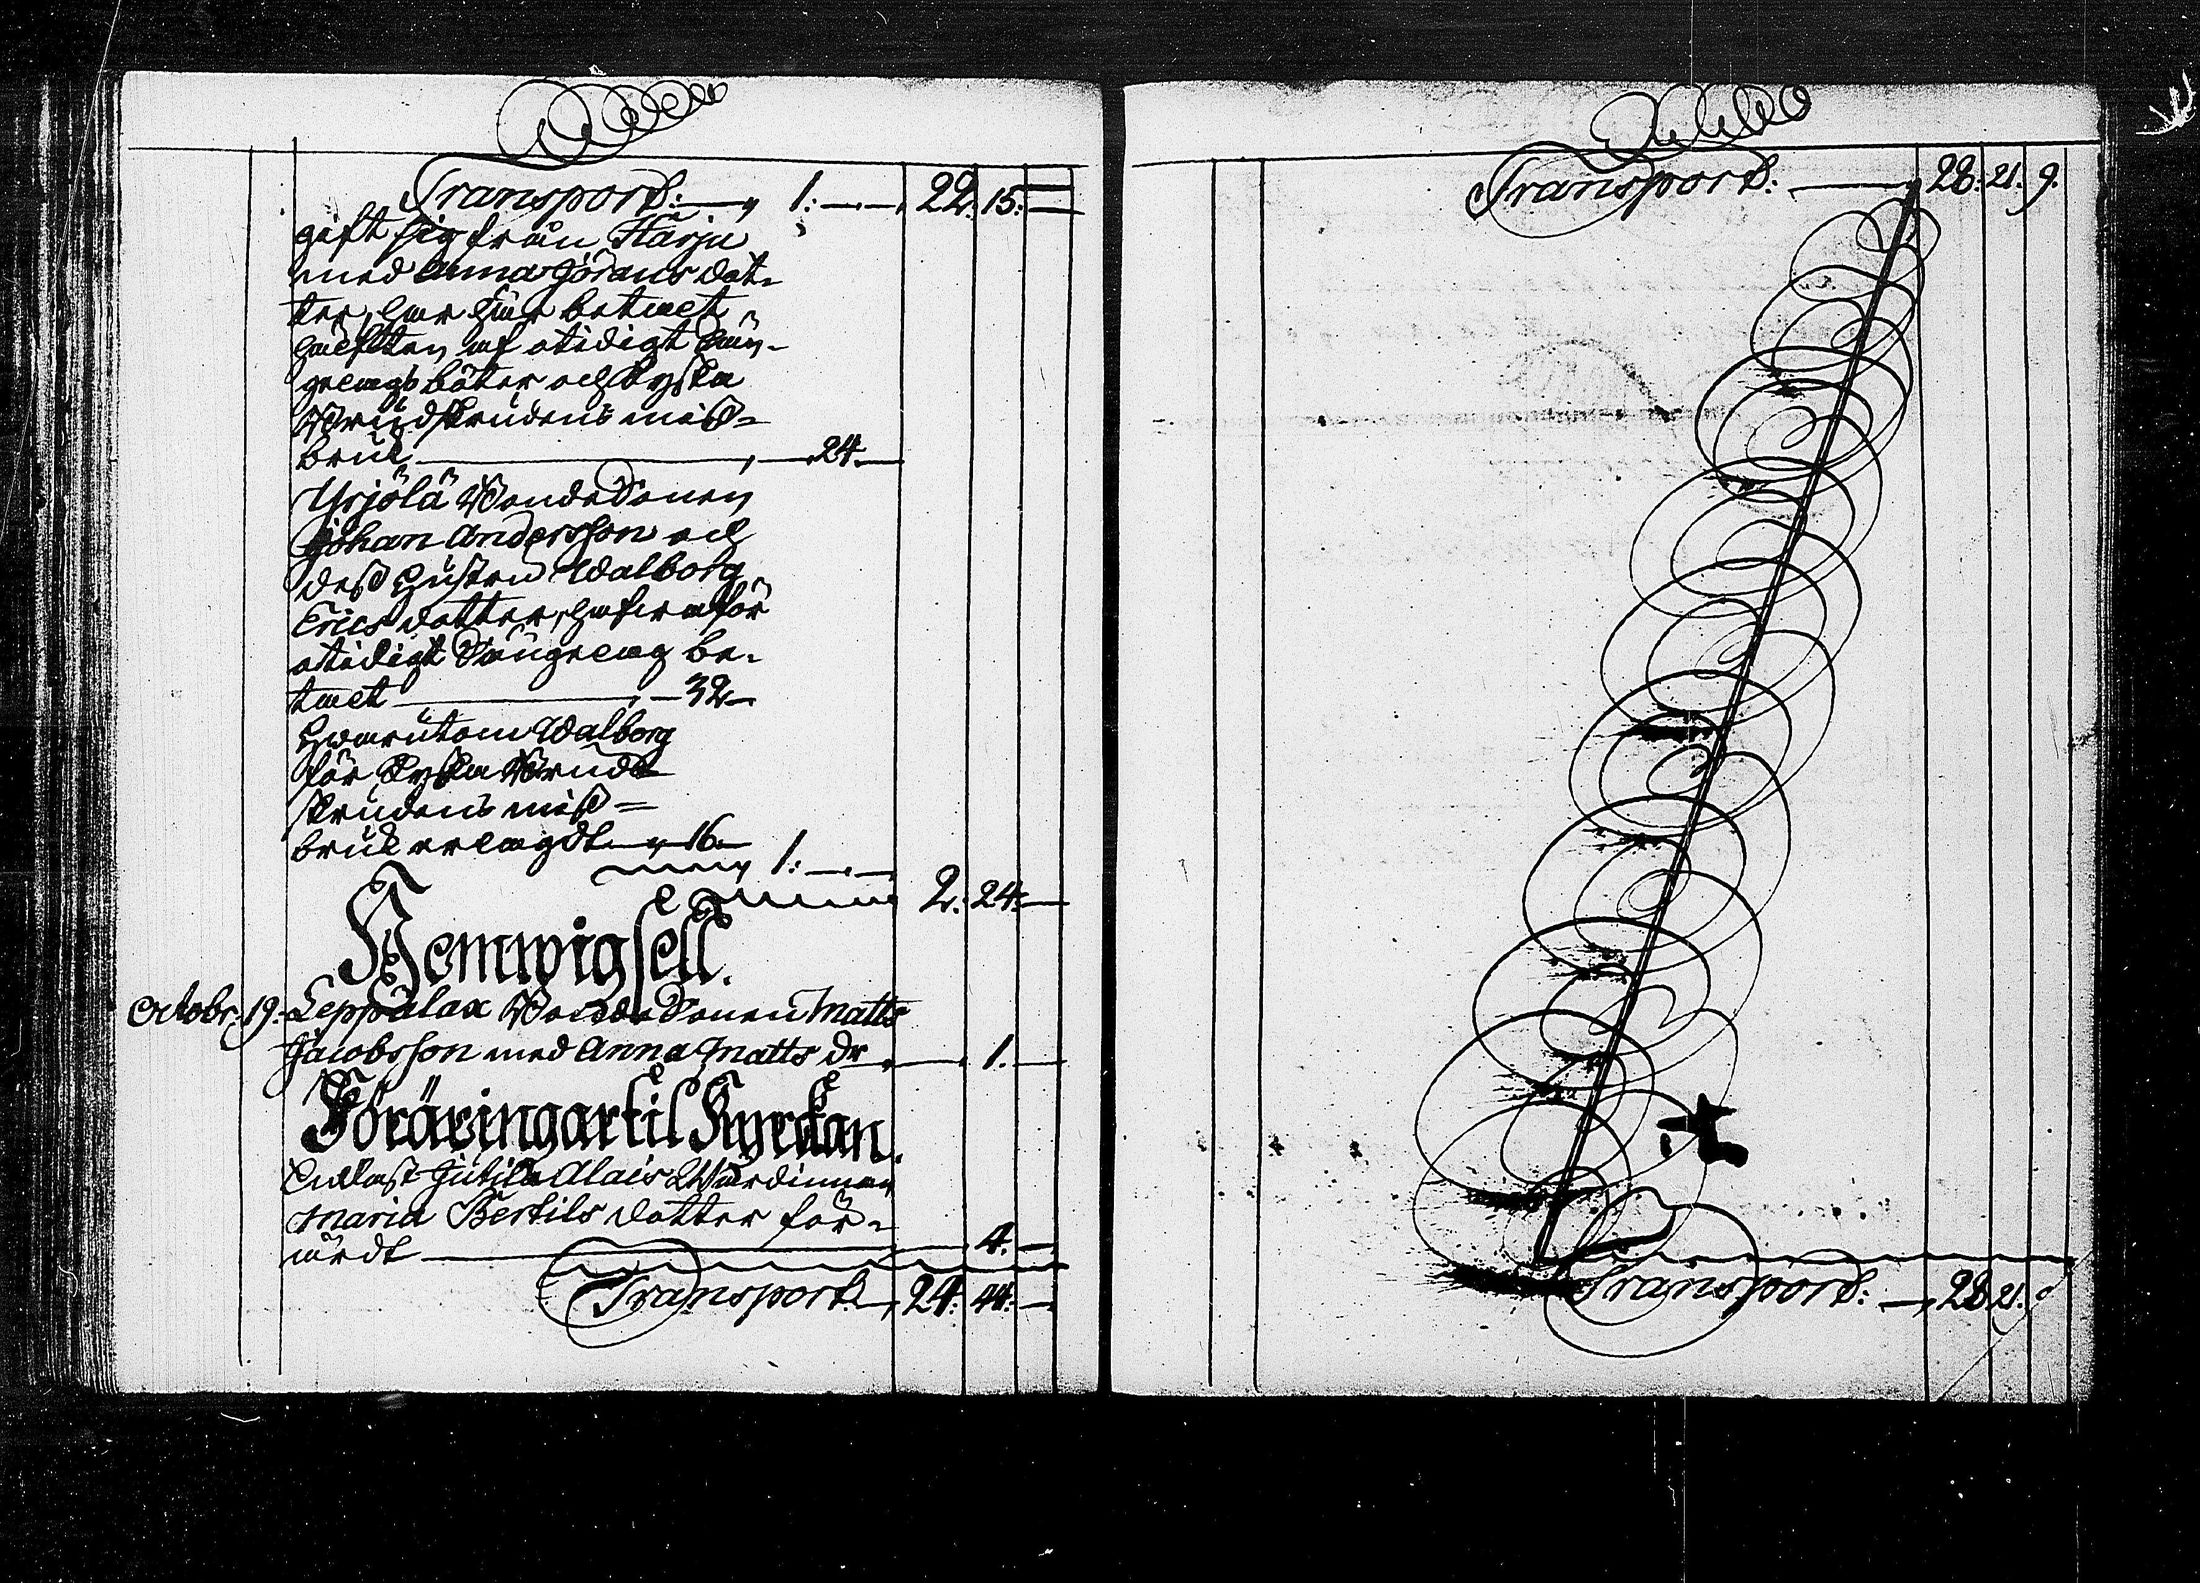 Transport: — „ 1: — — 22: 15: —
gift sig från Harju
med Anna Jörans dot-
ter, har här betaet
hälften af otidigt Sän-
gelags böter och kyska
Brudskrudens miss-
bruk — 24 —
Yrjölä Bondesonen
Johan Andersson och
dess Hustru Walborg
Erics dotter, hafwa för
otidigt Sängelag be-
taet — 32 —
Hwarutom Walborg
för kyska Brud
skrudens miss-
bruk erlagdt — „ 16 —
1: — —
2: 24: —
Hemwigsell.
Octobr: 19. Leppälax Bonde Sonen Matts
Jacobsson med Anna Matts dr — 1. —
Föräringar til Kyrckan.
Endast Jutila Alais Wärdinnan
Maria Bertils dotter för-
ärdt — 4. —
Transport — „ 24: 44: —
Transport: — „ 28: 21: 9.
Transport: — „ 28 21. 9